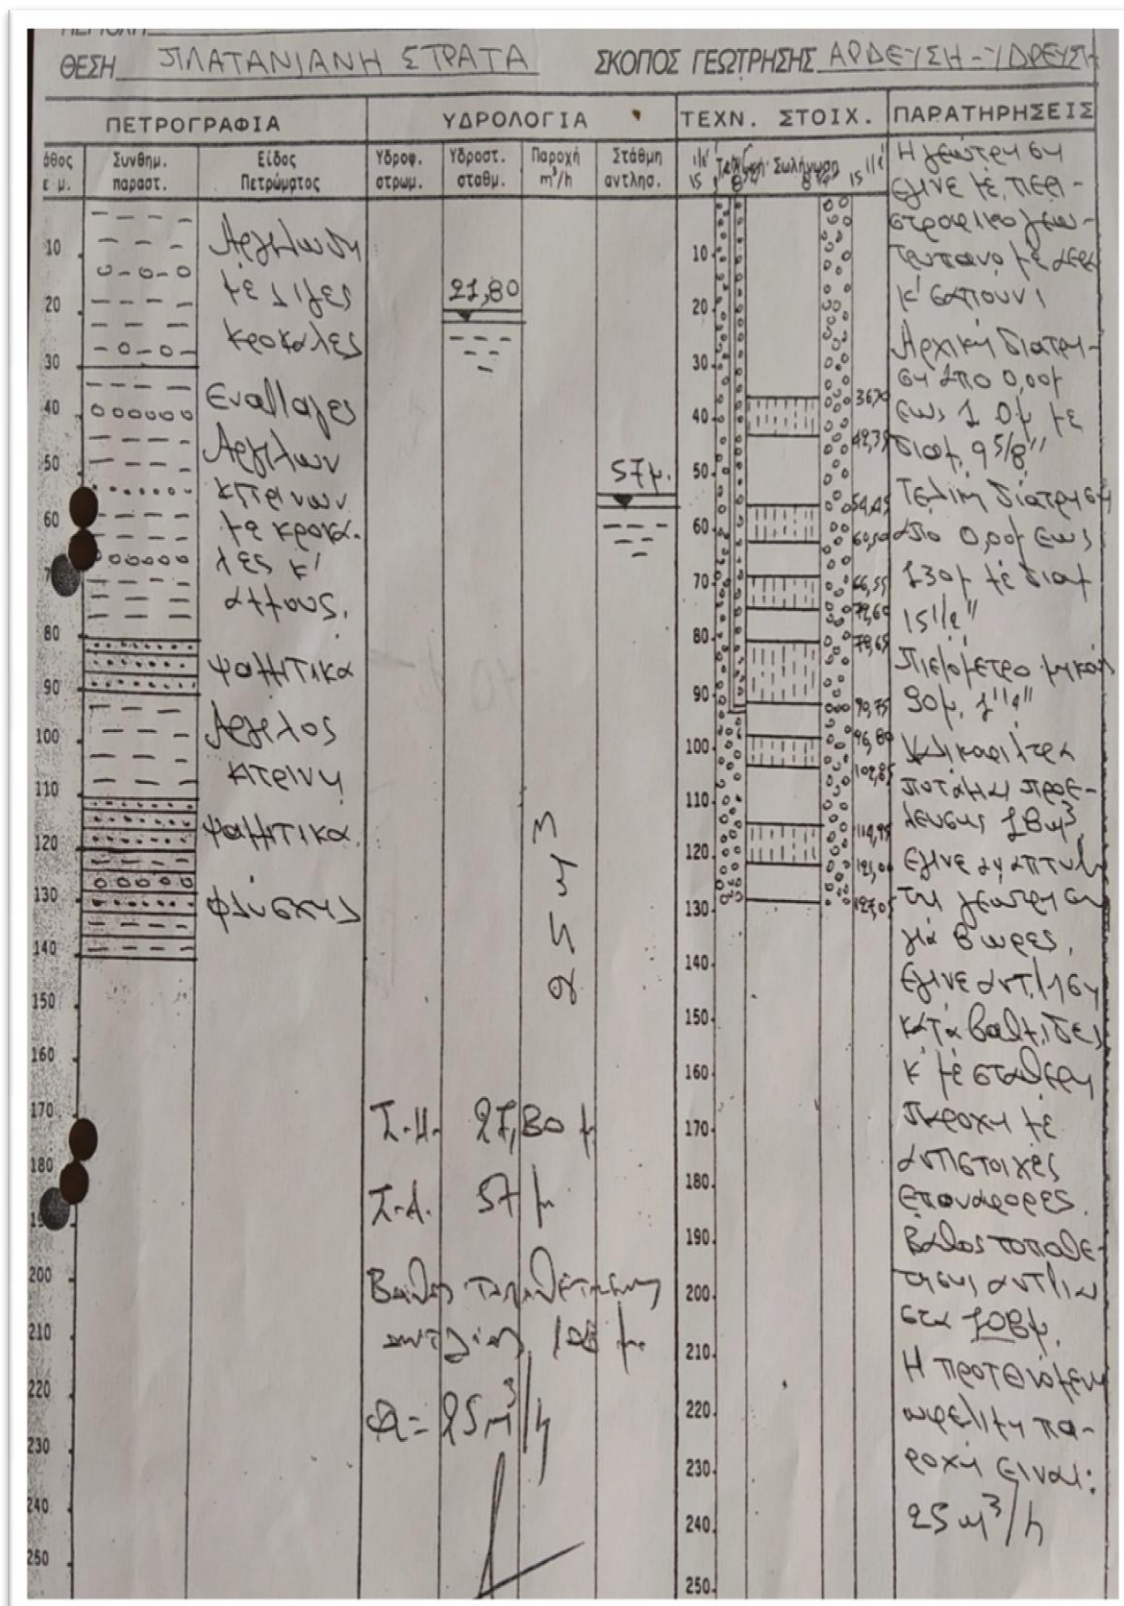 ΘΕΣΗ ΠΛΑΤΑΝΙΑΝΗ ΣΤΡΑΤΑ ΣΚΟΠΟΣ ΓΕΩΤΡΗΣΗΣ ΑΡΔΕΥΣΗ - ΥΔΡΕΥΣΗ
ΠΕΤΡΟΓΡΑΦΙΑ ΥΔΡΟΛΟΓΙΑ ΤΕΧΝ. ΣΤΟΙΧ. ΠΑΡΑΤΗΡΗΣΕΙΣ
Συνθημ. παραστ.
Είδος Πετρώματος
Υδροφ. στρωμ.
Υδροστ. σταθμ.
Παροχή m³/h
Στάθμη αντλησ.
Σωλήνωση
10
20
30
40
50
60
80
90
100
110
120
130
140
150
160
170
180
200
210
220
230
240
250
Αργιλώδη
με λίγες
κροκάλες
Εναλλαγές
Αργίλων
κιτρινων
με κροκά-
λες κ'
άμμους.
Ψαμμιτικα
Αργιλος
κιτρινη
Ψαμμιτικα
φλύσχης
21,80
57μ.
25 μ3
Σ.Η. 27,80 μ
Σ.Α. 57 μ
Βαθος τοποθέτησης
αντλίας 108 μ.
Q = 25 m³/h
10
20
30
40
50
60
70
80
90
100
110
120
130
140
150
160
170
180
190
200
210
220
230
240
250
36,70
42,35
54,45
60,50
66,55
72,60
78,65
90,75
96,80
102,85
114,95
121,00
127,05
Η γεωτρηση
εγινε με περι-
στροφικο γεω-
τρυπανο με αερα
κ' σαπουνι
Αρχικη διατρη-
ση απο 0,00μ
εως με
διαμ. 9 5/8"
Τελικη διατρηση
απο 0,00μ εως
130μ με διαμ
15 1/2"
Πιεζομετρο μηκους
90μ.
Χαλικοφιλτρα
ποταμιας προε-
λευσης 18μ3.
Εγινε αναπτυξη
της γεωτρησης
για 8 ωρες.
Εγινε αντληση
κατα βαθμιδες
κ' με σταθερη
παροχη με
αντιστοιχες
επαναφορες.
Βαθος τοποθε-
τησης αντλιας
στα 108μ.
Η προτεινομενη
ωφελιμη πα-
ροχη ειναι:
25 μ3/h